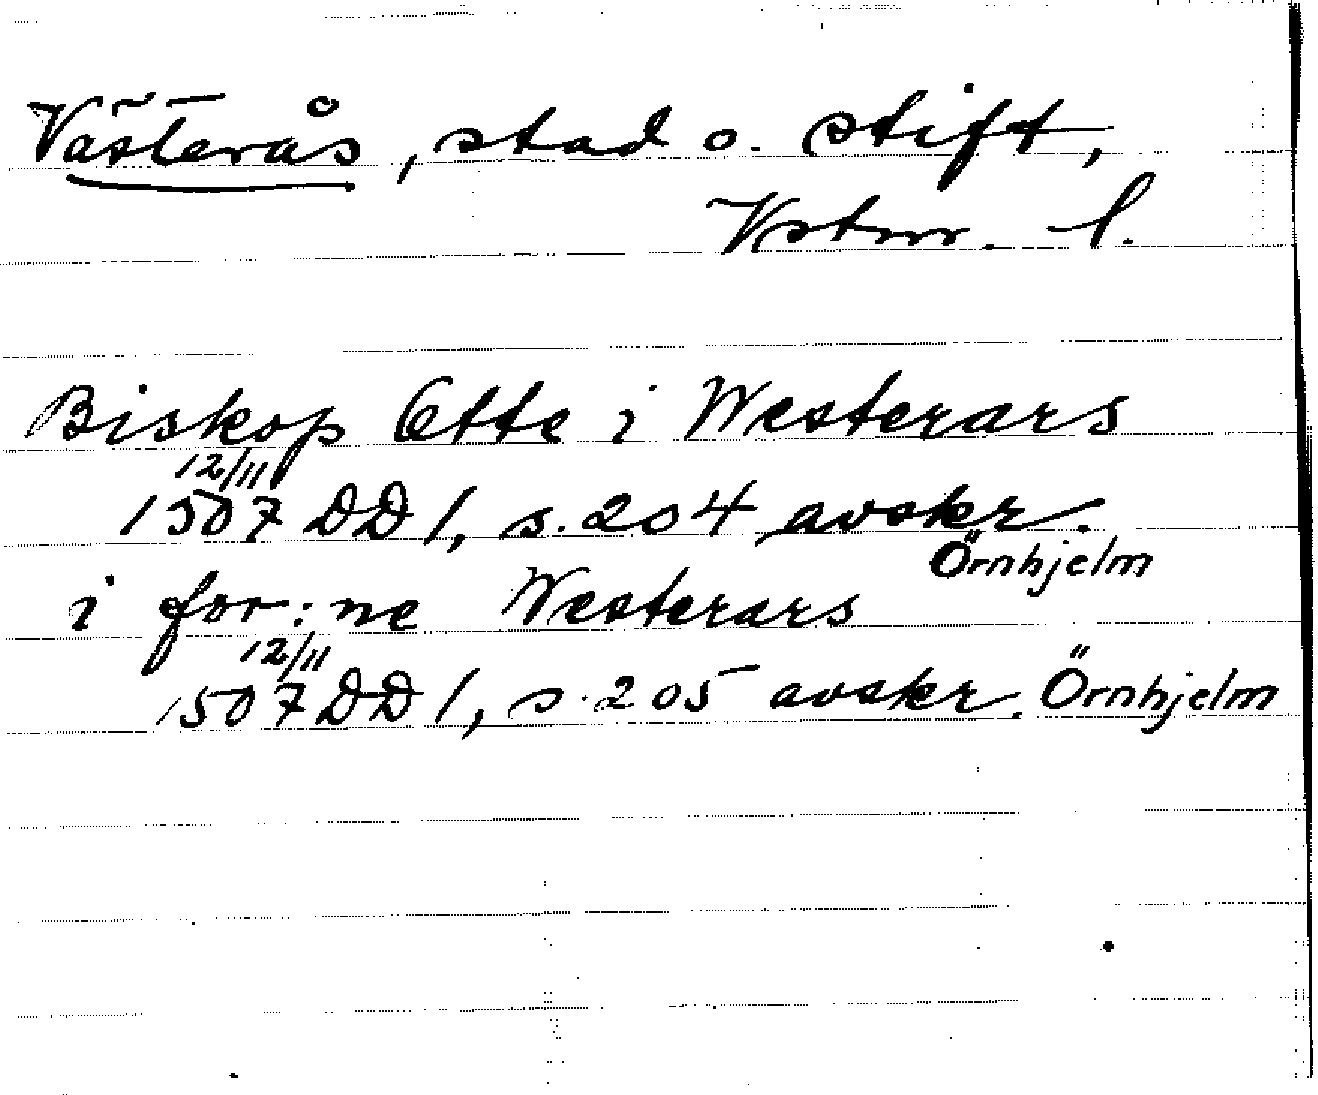 Västerås, stad o. stift,
Vstm. l.
Biskop Otte i Westerars
12/11
1507 DD 1, s. 204 avskr.
Örnhjelm
i for:ne Westerars
12/11
1507 DD 1, s. 205 avskr. Örnhjelm